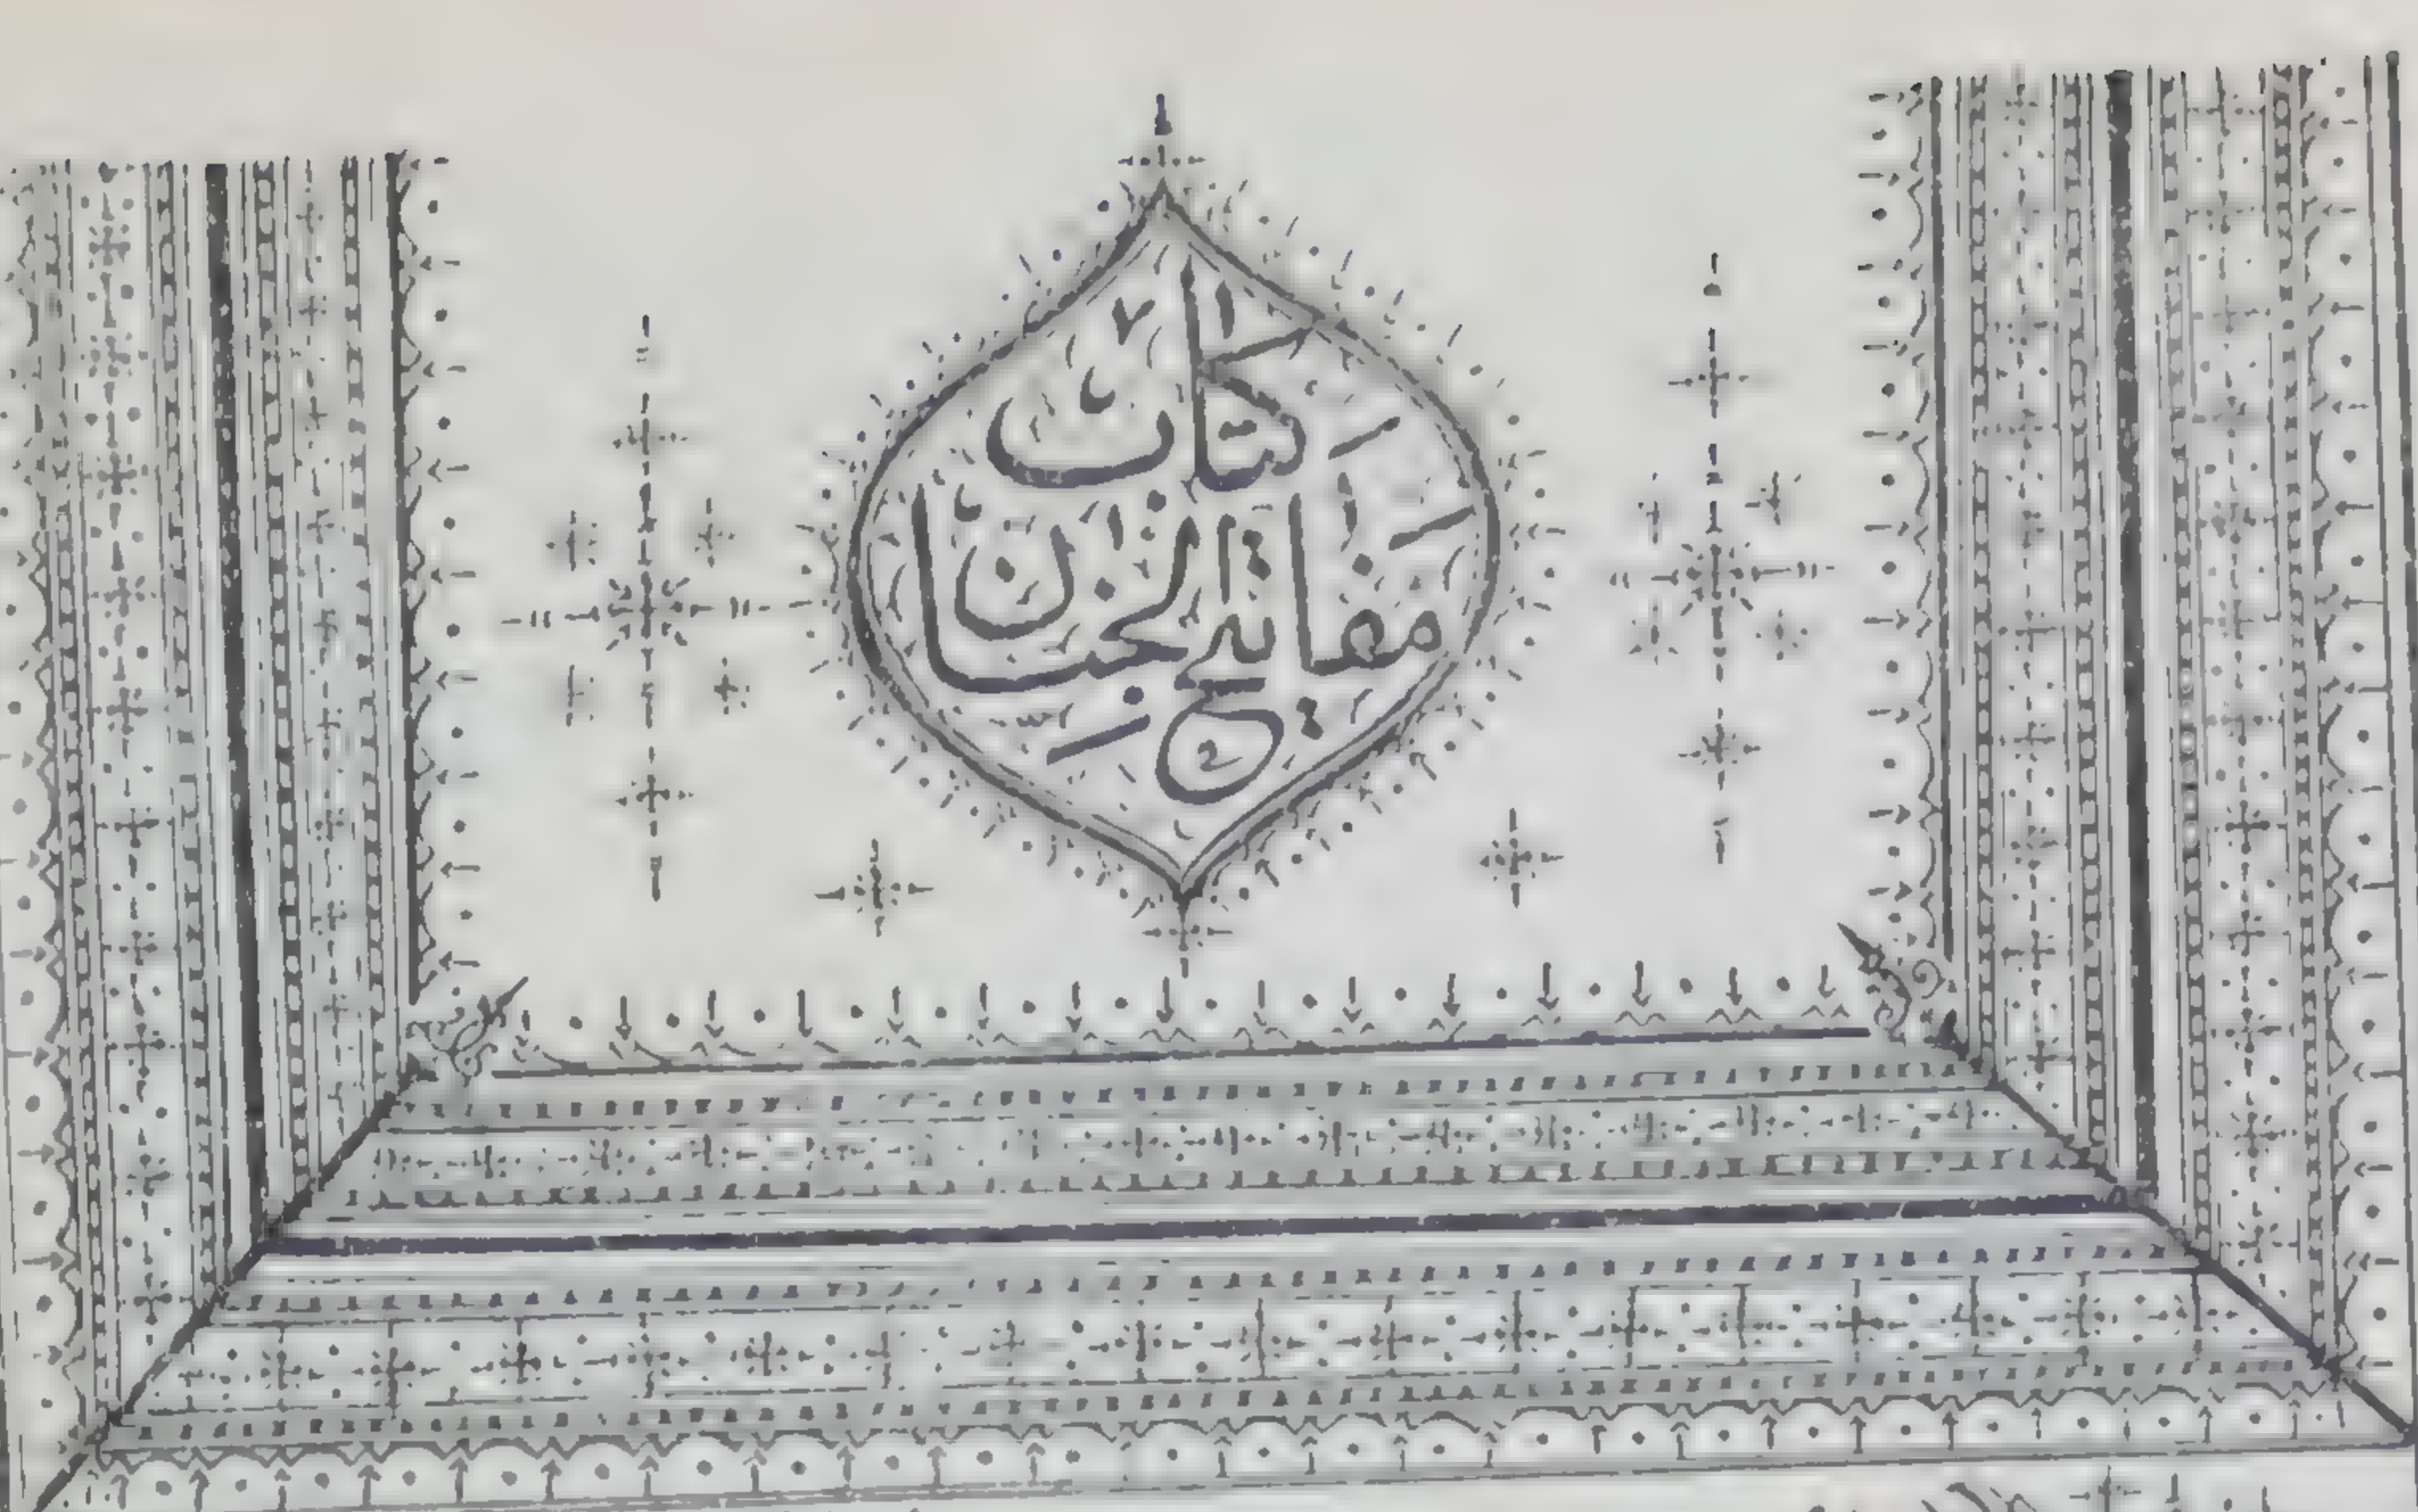 كتاب
مفاتيح الجنان